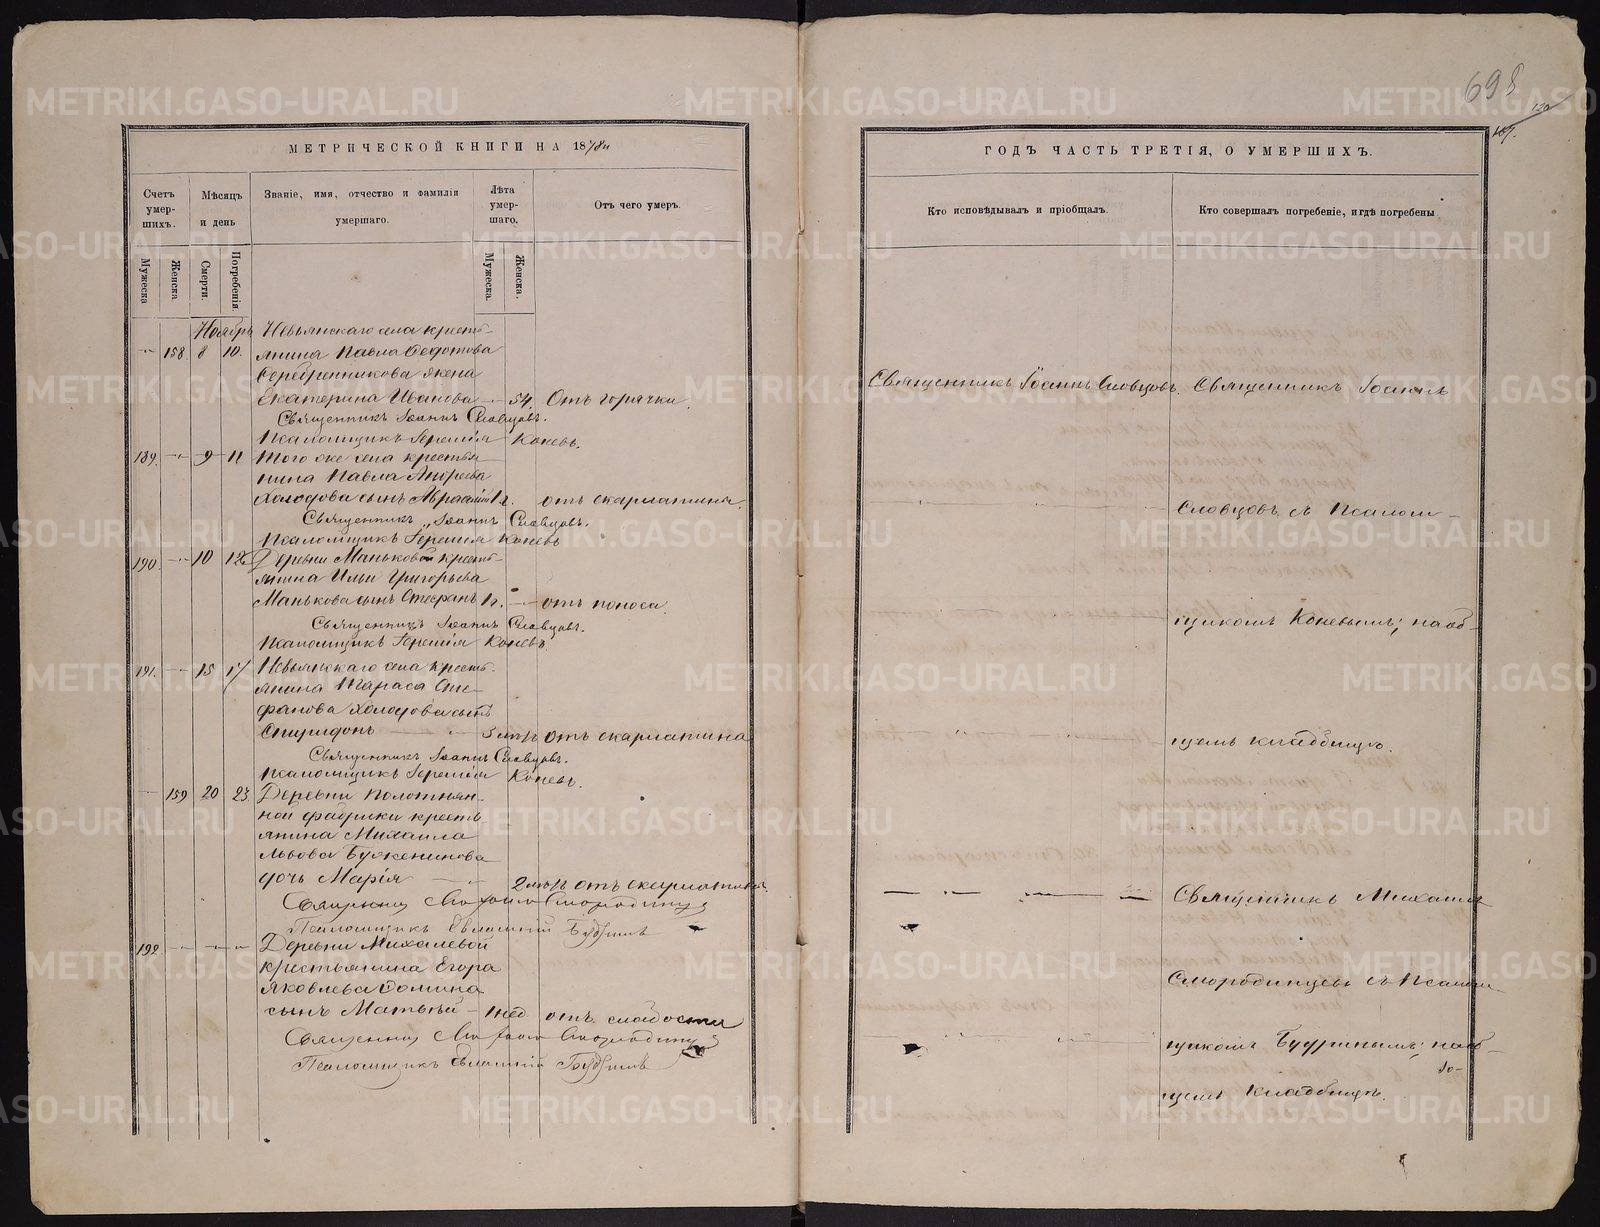 698
120
187.
МЕТРИЧЕСКОЙ КНИГИ НА 1878й
Счетъ умер- шихъ.
Мѣсяцъ и день
Званіе, имя, отчество и фамилія умершаго.
Лѣта умер- шаго.
Отъ чего умеръ.
Мужеска
Женска
Смерти.
Погребенія
Мужеска.
Женска.
Ноябрь Невьянскаго села кресть-
158 8 10. янина Павла Федотова
Серебренникова жена
Екатерина Иванова — 54. Отъ горячки.
Священникъ Іоаннъ Словцовъ.
Псаломщикъ Іеремія Коневъ.
189. — 9 11 Того же села крестья-
нина Павла Андреева
Холодова сынъ Авраамій 1 г. отъ скарлатины
Священникъ Іоаннъ Словцовъ.
Псаломщикъ Іеремія Коневъ
190. — 10 12 Деревни Маньковой кресть-
янина Ильи Григорьева
Манькова сынъ Стефанъ 1 г. — отъ поноса.
Священникъ Іоаннъ Словцовъ.
Псаломщикъ Іеремія Коневъ
191. — 15 17 Невьянскаго села кресть-
янина Тараса Сте-
фанова Холодова сынъ
Спиридонъ — 3 отъ скарлатина
Священникъ Іоаннъ Словцовъ.
Псаломщикъ Іеремія Коневъ.
— 159 20 23 Деревни Полотнян-
ной фабрики кресть
янина Михаила
Львова Бужениновa
дочь Марія — 2 отъ скарлатина.
Священникъ Смородинцевъ
Псаломщикъ Будринъ
192 — — — Деревни Михалевой
крестьянина Егора
Яковлева Сомина
сынъ Матвѣй — 1 нед. отъ слабости
Священникъ Смородинцевъ
Псаломщикъ Будринъ
ГОДЪ ЧАСТЬ ТРЕТІЯ, О УМЕРШИХЪ.
Кто исповѣдывалъ и пріобщалъ.
Кто совершалъ погребеніе, и гдѣ погребены
Священникъ Іоаннъ Словцовъ. Священникъ Іоаннъ
Словцовъ съ Псалом-
щикомъ Коневымъ; на об-
щемъ кладбищѣ.
Священникъ Михаилъ
Смородинцевъ съ Псалом
щикомъ Будринымъ; на об-
щемъ кладбищѣ.
METRIKI.GASO-URAL.RU